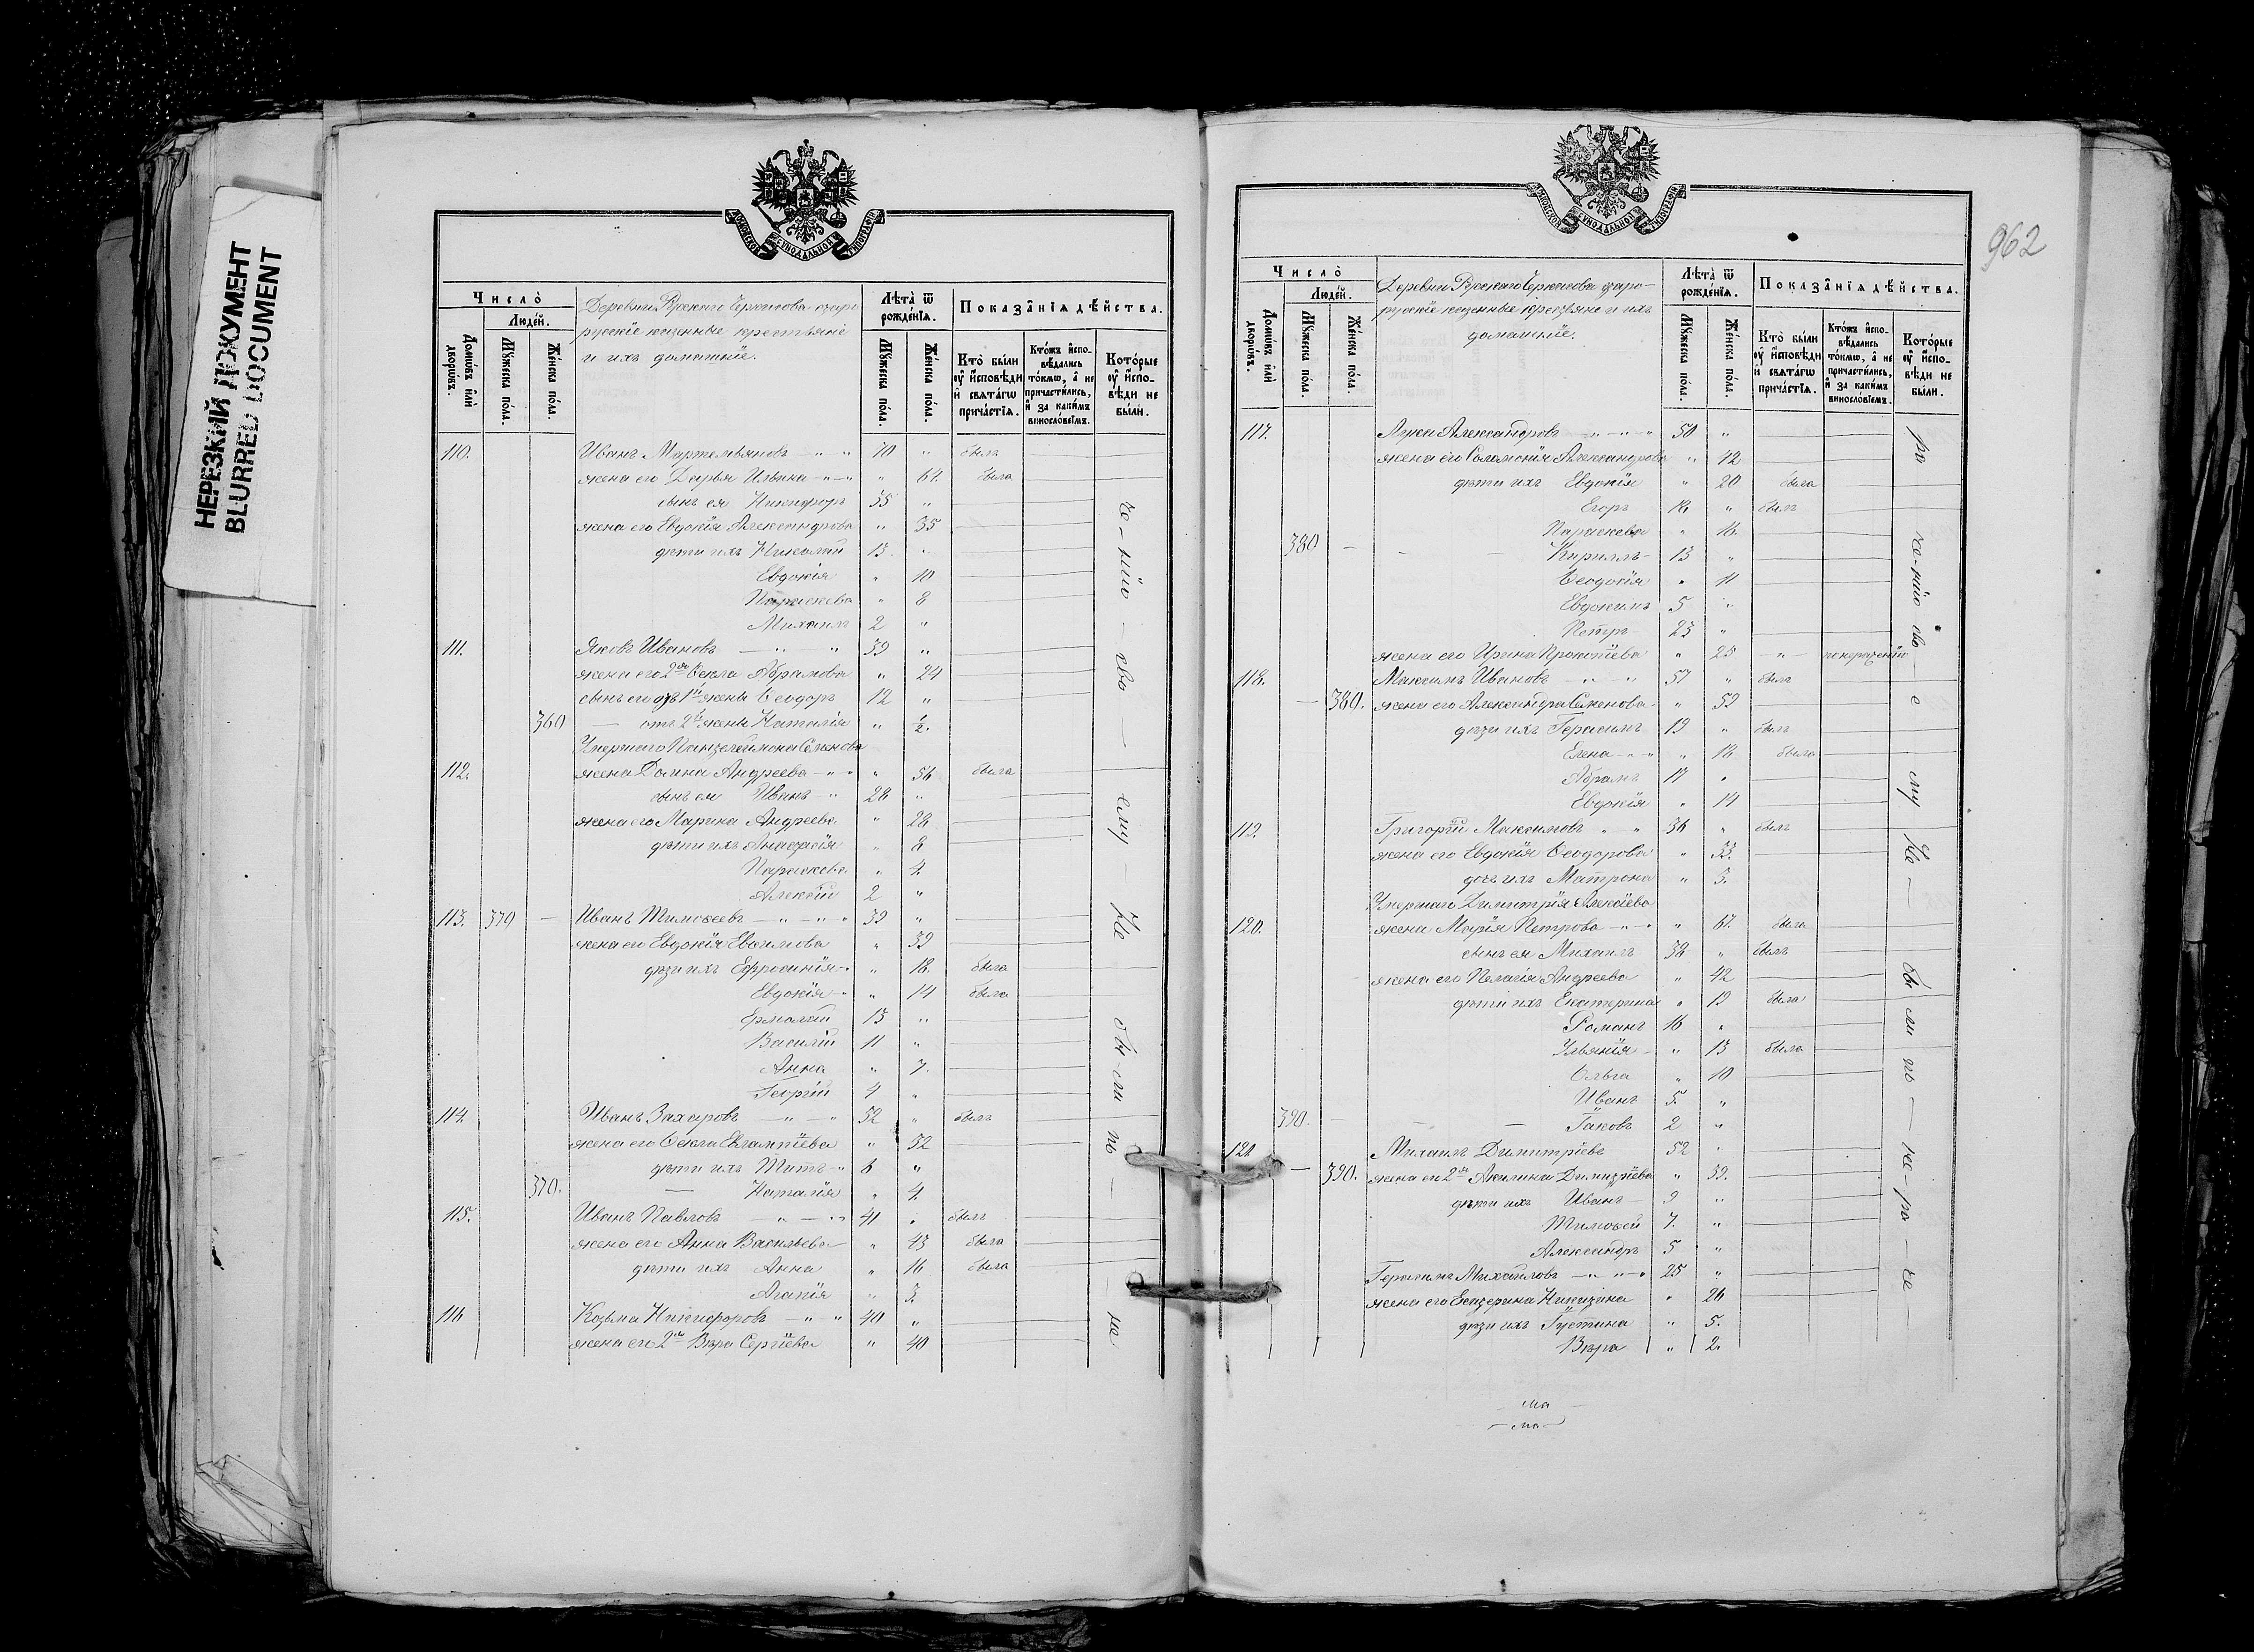 НЕРЕЗКИЙ ДОКУМЕНТ
BLURRED DOCUMENT
МОСКОВСКОЙ СѴНОДАЛЬНОЙ ТИПОГРАФІИ
Число̀
Люде́й.
Домѡ́въ и҆лѝ дворѡ́въ.
Мꙋ́жеска по́ла.
Же́нска по́ла.
Деревни Русскаго Черкасова старо-
русскіе казенные крестьяне
и ихъ домашніе.
Лѣта̀ ѿ рожде́нїѧ.
Мꙋ́жеска по́ла.
Же́нска по́ла.
Показа̑нїѧ дѣ́йства.
Кто̀ бы́ли ᲂу҆ и҆́сповѣди и҆ свѧта́гѡ прича́стїѧ.
Кто́жъ и҆спо-вѣ́дались то́кмѡ, а҆ не причасти́лись, и҆ за каки́мъ винослові́емъ.
Кото́рые ᲂу҆ и҆́спо-вѣди не бы́ли.
110. Иванъ Мартемьяновъ — " " 70 " былъ
жена его Дарья Ильина — " — " " 61. была
сынъ ея Никифоръ 35 "
жена его Евдокія Александрова " 35
дѣти ихъ Николай 13. "
Евдокія " 10
Параскева " 8
Михаилъ 2 "
111. Яковъ Ивановъ — " " 39 "
жена его 2ая Ѳекла Абрамова " 24
сынъ его отъ 1й жены Ѳеодоръ 12 "
360 — отъ 2й жены Наталія " ½.
Умершаго Пантелеимона Семенова
112. жена Домна Андреева — " " " 56 была
сынъ ея Иванъ " 28 "
жена его Марина Андреева " 28
дѣти ихъ Анастасія " 8
Параскева " 4
Алексѣй 2 "
113. 370 — Иванъ Тимоѳеевъ — " — " " 39 "
жена его Евдокія Евѳимова " 39
дѣти ихъ Ефросинія " 18. была
Евдокія " " 14 была
Ермолай 13 "
Василій 11 "
Анна " 7.
Георгій 4 "
114. Иванъ Захаровъ — " — " 52 " былъ
жена его Ѳекла Евлампіева " 52
дѣти ихъ Титъ " 6 "
370. — Наталія " 4.
115. Иванъ Павловъ — " — " 41 " былъ
жена его Анна Васильева " 43 была
дѣти ихъ Анна " 16 была
Агапія " 3.
116 Козьма Никифоровъ — " " 40 "
жена его 2ая Вѣра Сергіева " 40
не — нію — сво — ему — не — бы ли по — не
962
МОСКОВСКОЙ СѴНОДАЛЬНОЙ ТИПОГРАФІИ
Число̀
Люде́й.
Домѡ́въ и҆лѝ дворѡ́въ.
Мꙋ́жеска по́ла.
Же́нска по́ла.
Деревни Русскаго Черкасова старо-
русскіе казенные крестьяне и ихъ
домашніе.
Лѣта̀ ѿ рожде́нїѧ.
Мꙋ́жеска по́ла.
Же́нска по́ла.
Показа̑нїѧ дѣ́йства.
Кто̀ бы́ли ᲂу҆ и҆́сповѣди и҆ свѧта́гѡ прича́стїѧ.
Кто́жъ и҆спо-вѣ́дались то́кмѡ, а҆ не причасти́лись, и҆ за каки́мъ винослові́емъ.
Кото́рые ᲂу҆ и҆́спо-вѣди не бы́ли.
117. Лука Александровъ — " — " — " 50 "
жена его Соломонія Александрова " 42
дѣти ихъ Евдокія " 20 была
Егоръ 18 " былъ
Параскева " 16.
380 — — Кириллъ — 13 "
Ѳеодосія " 11
Евдокимъ 5 "
Петръ 23 "
жена его Ирина Прокопіева " 23 — " —
118. Максимъ Ивановъ — " — " 57 " былъ
— 380. жена его Александра Семенова " 59
дѣти ихъ Герасимъ 19 " былъ
Елена — " — " " 18 была
Абрамъ 17 "
Евдокія " 14
119. Григорій Максимовъ " " 36 " былъ
жена его Евдокія Ѳеодорова " 33.
дочь ихъ Матрона " 3.
Умершаго Димитрія Алексіева
120. жена Марія Петрова — " — " " 67. была
сынъ ея Михаилъ 38 " былъ
жена его Пелагія Андреева " 42
дѣти ихъ Екатерина " 19 была
Романъ 16 "
Ульянія " 13 была
Ольга " 10
Иванъ 5. "
390. — — Іаковъ 2 "
121 Михаилъ Димитріевъ 52 "
— 390. жена его 2ая Акилина Димитріева " 39.
дѣти ихъ Иванъ — 9 "
Тимоѳей 7. "
Александръ 5 "
Герасимъ Михайловъ — " " — " 25 "
жена его Екатерина Никитина " 26
дѣти ихъ Іустина " 5.
Вѣра " 2.
ра не — нію сво е му не — бы ли по — не — ра — че